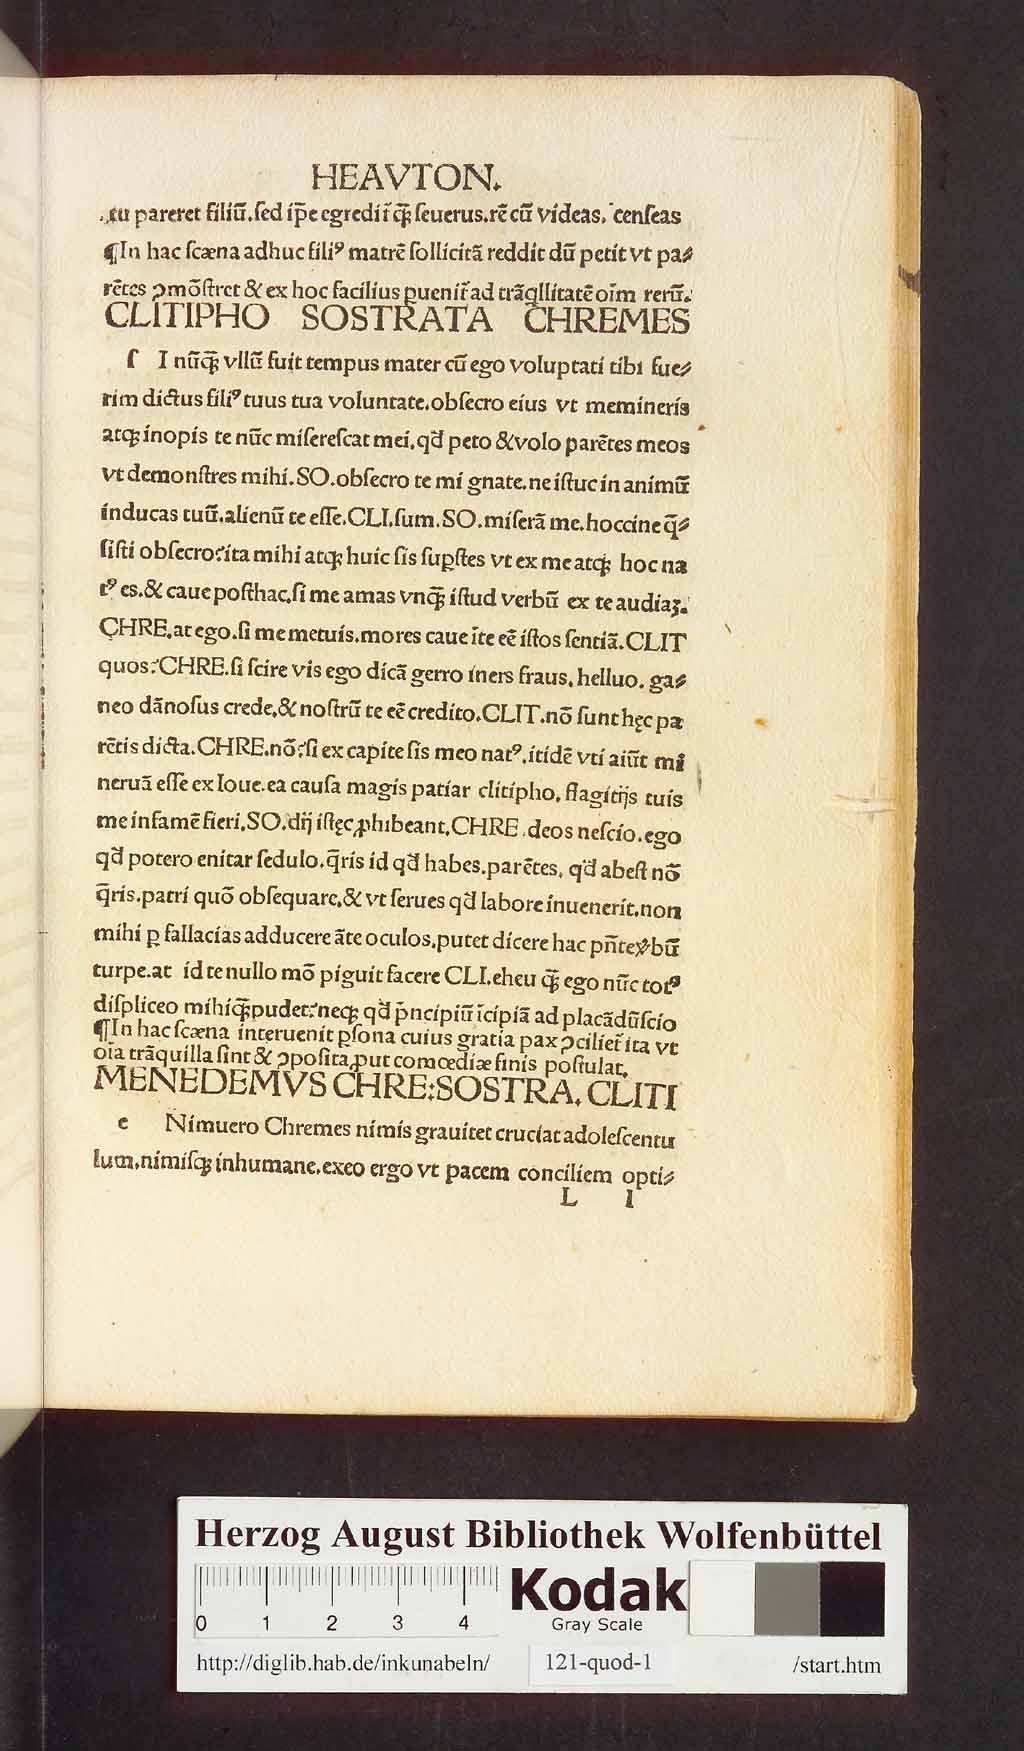 HEAVTON.
tu pareret filiū. sed ip̄e egredit̄ q̄ꝫ seuerus. rē cū videas. censeas
¶In hac scæna adhuc filiꝰ matrē sollicitā reddit dū petit vt pa⸗
rētes ꝯmōstret & ex hoc facilius ꝑuenit̄ ad trāqllitatē oīm rerū.
CLITIPHO SOSTRATA CHREMES
ſ I nūq̄ꝫ vllū fuit tempus mater cū ego voluptati tibi fue⸗
rim dictus filiꝰ tuus tua voluntate. obsecro eius vt memineris
atqꝫ inopis te nūc miserescat mei. qd̄ peto & volo parētes meos
vt demonstres mihi. SO. obsecro te mi gnate. ne istuc in animū
inducas tuū. alienū te esse. CLI. sum. SO. miserā me. hoccine q̄⸗
sisti obsecro? ita mihi atqꝫ huic sis suꝑstes vt ex me atqꝫ hoc na
tꝰ es. & caue posthac. si me amas vnq̄ꝫ istud verbū ex te audiaꝫ.
CHRE. at ego. si me metuis. mores caue īte eē istos sentiā. CLIT
quos? CHRE. si scire vis ego dicā gerro iners fraus. helluo. ga⸗
neo dānosus crede. & nostrū te eē credito. CLIT. nō sunt hęc pa
rētis dicta. CHRE. nō? si ex capite sis meo natꝰ. itidē vti aiūt mi
neruā esse ex Ioue. ea causa magis patiar clitipho. flagitijs tuis
me infamē fieri. SO. dij istęc ꝓhibeant. CHRE. deos nescio. ego
qd̄ potero enitar sedulo. q̄ris id qd̄ habes. parētes. qd̄ abest nō
q̄ris. patri quō obsequare. & vt serues qd̄ labore inuenerit. non
mihi ꝑ fallacias adducere āte oculos. putet dicere hac pn̄te ꝟbū
turpe. at id te nullo mō piguit facere CLI. eheu q̄ꝫ ego nūc totꝰ
displiceo mihi q̄ꝫ pudet? neqꝫ qd̄ p̄ncipiū īcipiā ad placādū scio
¶In hac scæna interuenit ꝑsona cuius gratia pax ꝯciliet̄ ita vt
oīa trāquilla sint & ꝯposita. put comœdiæ finis postulat.
MENEDEMVS CHRE: SOSTRA. CLITI
e Nimuero Chremes nimis grauitet cruciat adolescentu
lum. nimisqꝫ inhumane. exeo ergo vt pacem conciliem opti⸗
L I
Herzog August Bibliothek Wolfenbüttel
0 1 2 3 4
Kodak
Gray Scale
http://diglib.hab.de/inkunabeln/ 121-quod-1 /start.htm